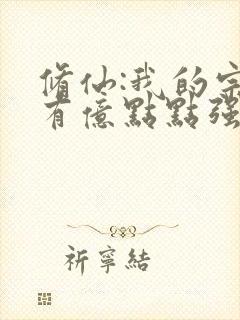 脩仙:我的宗
有億點點強
祈寧結